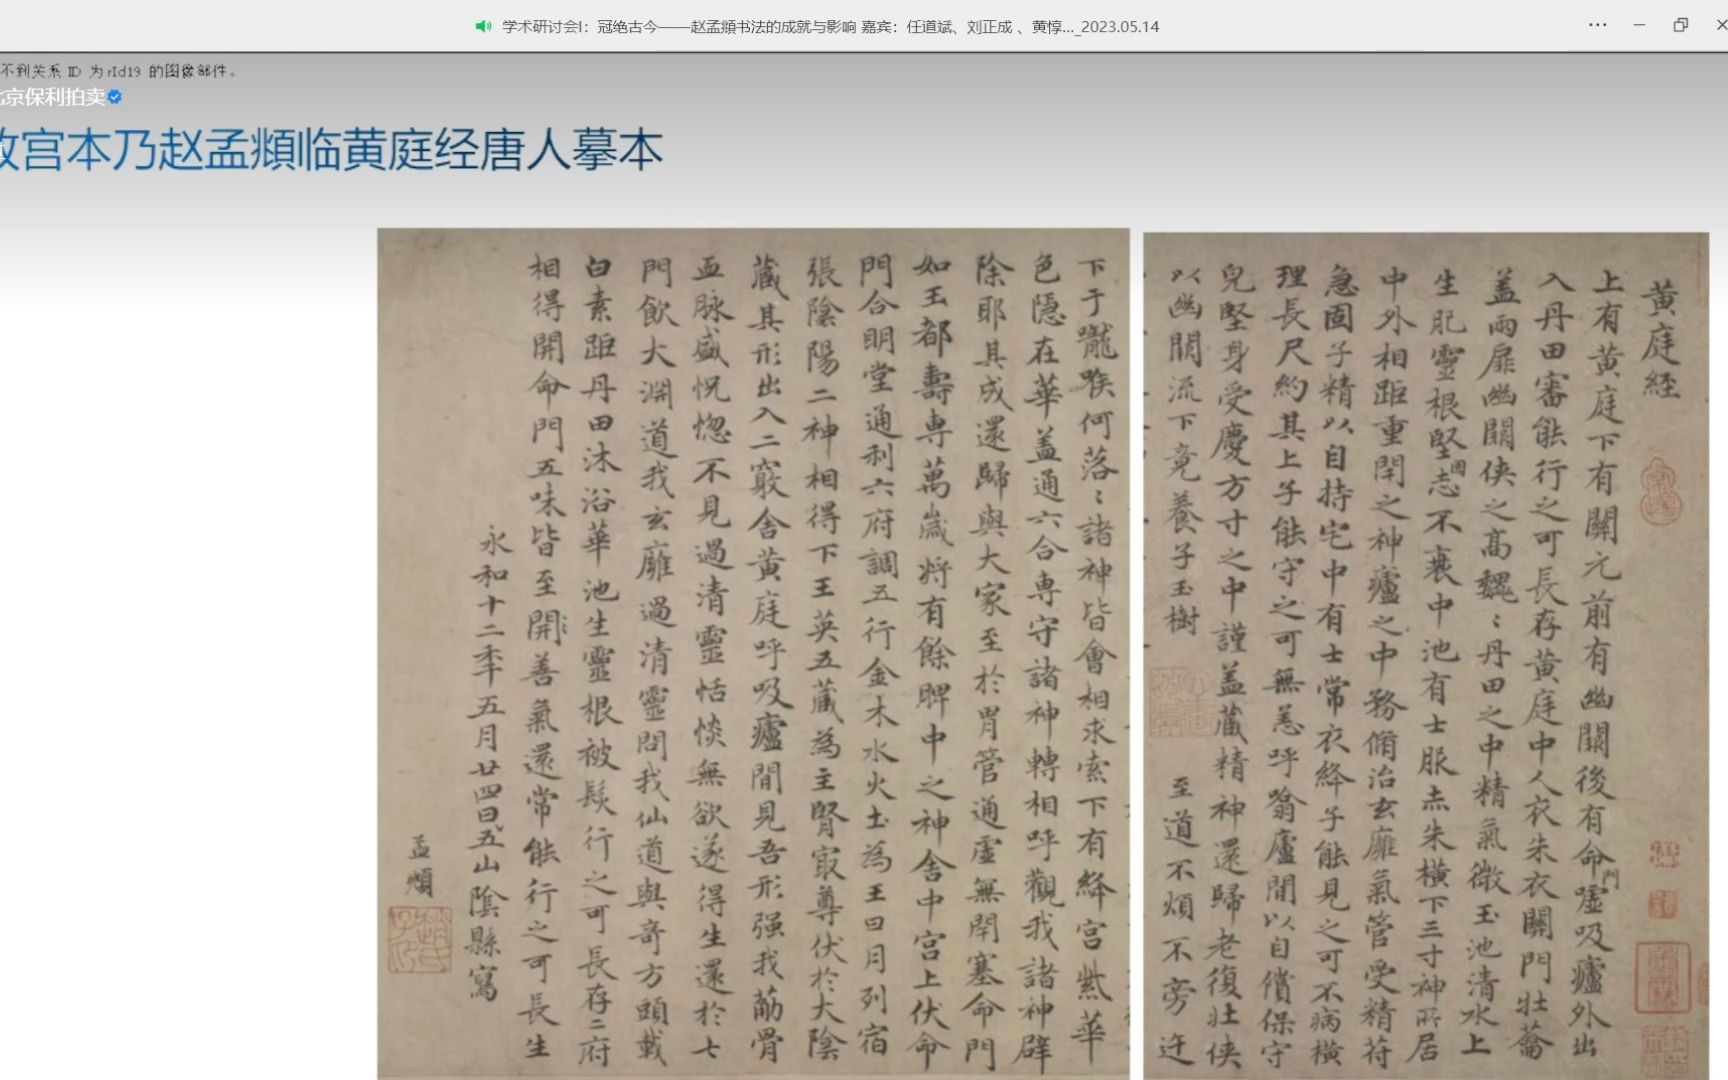 学术研讨会I：冠绝古今——赵孟頫书法的成就与影响 嘉宾：任道斌、刘正成 、黄惇..._2023.05.14
不到关系 ID 为 rId19 的图像部件。
北京保利拍卖
故宫本乃赵孟頫临黄庭经唐人摹本
黄庭经
上有黄庭下有關元前有幽關後有命門嘘吸廬外出
入丹田審能行之可長存黄庭中人衣朱衣關門壮蘥
盖兩扉幽關俠之髙魏〻丹田之中精氣微玉池清水上
生肥靈根堅固志不衰中池有士服赤朱橫下三寸神所居
中外相距重閇之神廬之中務脩治玄廱氣管受精苻
急固子精以自持宅中有士常衣絳子能見之可不病橫
理長尺約其上子能守之可無恙呼噏廬間以自償保守
皃堅身受慶方寸之中謹盖藏精神還歸老復壮俠
以幽關流下竟養子玉樹 至道不煩不旁迕
下于嚨喉何落〻諸神皆會相求索下有絳宫紫華
色隱在華盖通六合専守諸神轉相呼觀我諸神辟
除耶其成還歸與大家至於胃管通虚無閇塞命門
如玉都壽専萬歲将有餘脾中之神舍中宫上伏命
門合明堂通利六府調五行金木水火土為王日月列宿
張陰陽二神相得下玉英五藏為主腎冣尊伏於大陰
藏其形出入二竅舍黄庭呼吸廬間見吾形强我筋骨
血脉盛怳惚不見過清靈恬惔無欲遂得生還於七
門飲大淵道我玄廱過清靈問我仙道與奇方頭載
白素距丹田沐浴華池生靈根被髮行之可長存二府
相得開命門五味皆至開善氣還常能行之可長生
永和十二年五月廿四日五山陰縣寫
孟頫